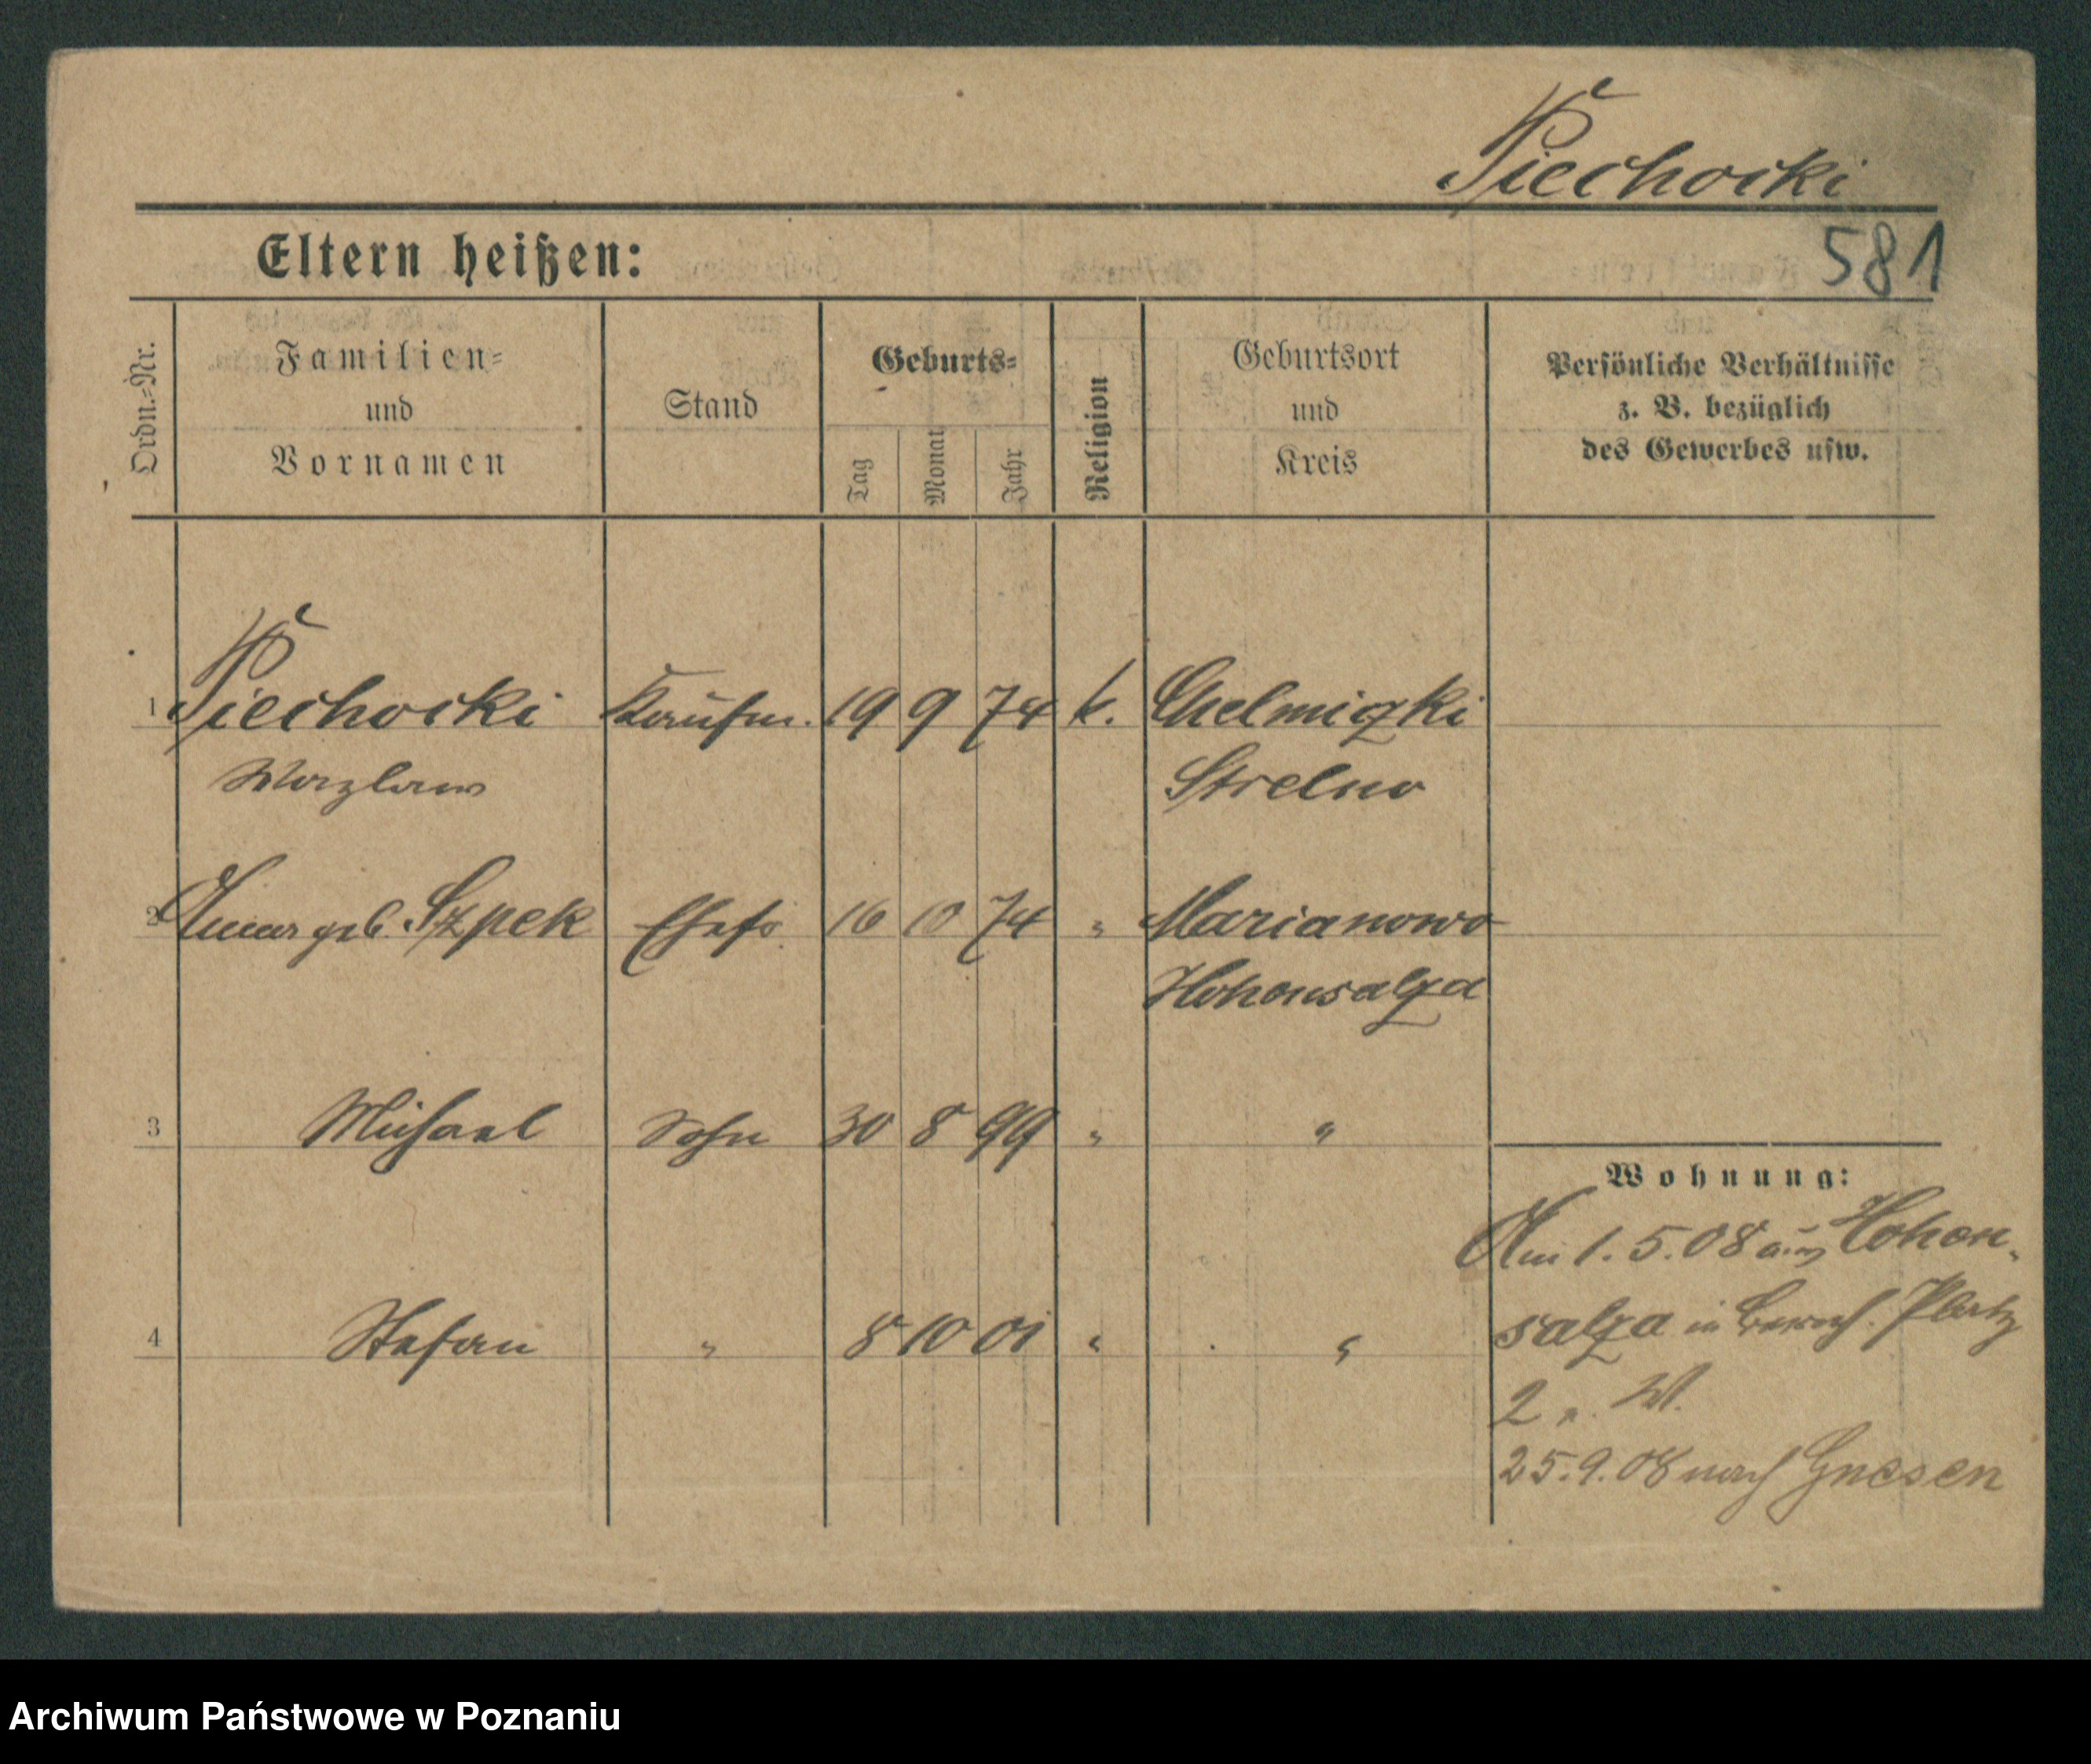 Piechocki
Eltern heißen:
581
Ordn.=Nr.
Familien=
und
Vornamen
Stand
Geburts=
Tag
Monat
Jahr
Religion
Geburtsort
und
Kreis
Persönliche Verhältnisse
z. B. bezüglich
des Gewerbes usw.
1 Piechocki Kaufm. 19 9 74 k. Chelmiczki
Wazlaw Strelno
2 Anna geb. Szpek Ehefr. 16 10 74 " Marianowo
Hohensalza
3 Michael Sohn 30 8 99 " "
Wohnung:
Am 1.5.08 aus Hohen-
4 Stefan " 8 10 01 " "
salza in Platz
2
25.9.08 nach Gnesen
Archiwum Państwowe w Poznaniu